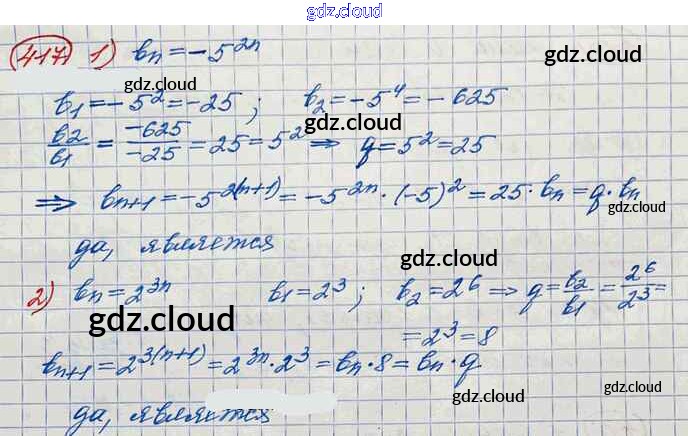 gdz.cloud
417 1) bₙ = -5²ⁿ gdz.cloud
gdz.cloud
b₁ = -5² = -25; b₂ = -5⁴ = -625
gdz.cloud
b₂/b₁ = -625/-25 = 25 = 5² ⇒ q = 5² = 25
gdz.cloud
⇒ bₙ₊₁ = -5²⁽ⁿ⁺¹⁾ = -5²ⁿ · (-5)² = 25 · bₙ = q · bₙ
gdz.cloud
да, является
gdz.cloud
2) bₙ = 2³ⁿ b₁ = 2³; b₂ = 2⁶ ⇒ q = b₂/b₁ = 2⁶/2³ =
gdz.cloud
= 2³ = 8
bₙ₊₁ = 2³⁽ⁿ⁺¹⁾ = 2³ⁿ · 2³ = bₙ · 8 = bₙ · q
gdz.cloud
да, является
gdz.cloud